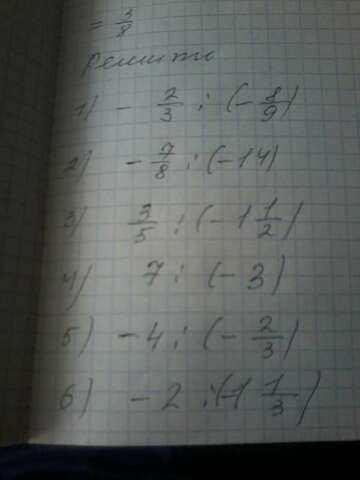 = 3/8
Решить
1) - 2/3 : (- 8/9)
2) - 7/8 : (-14)
3) 3/5 : (-1 1/2)
4) 7 : (-3)
5) -4 : (- 2/3)
6) -2 : (-1 1/3)